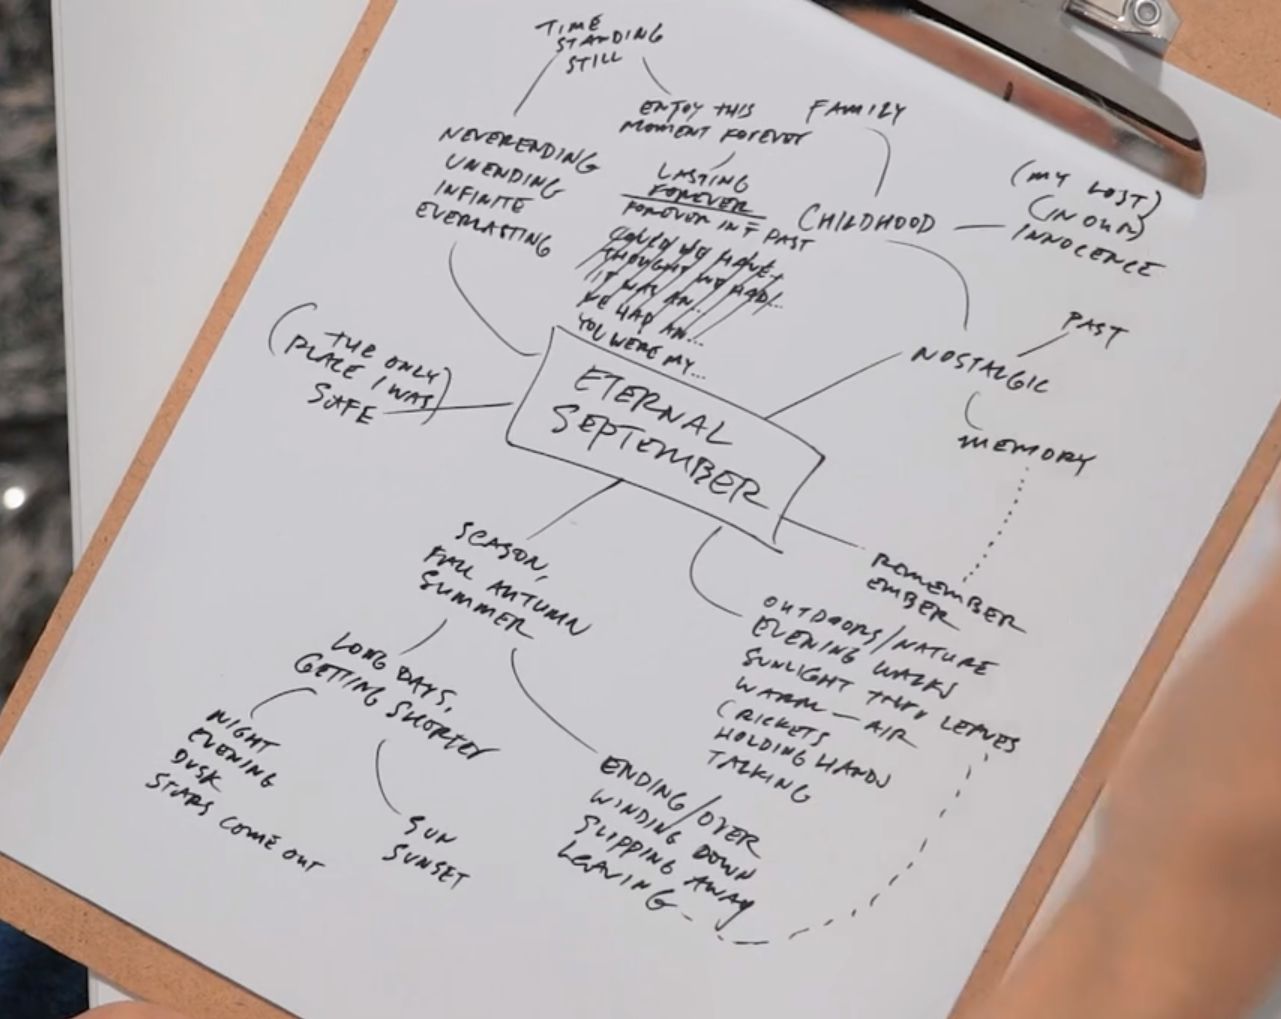 TIME
STANDING
STILL
ENJOY THIS
MOMENT FOREVER
FAMILY
NEVERENDING
UNENDING
INFINITE
EVERLASTING
LASTING
FOREVER
FOREVER IN PAST
COULD WE HAVE...
THOUGHT WE HAD...
IT WAS AN...
WE HAD AN...
YOU WERE MY...
CHILDHOOD
(MY LOST)
(IN OUR)
INNOCENCE
PAST
NOSTALGIC
MEMORY
(THE ONLY
PLACE I WAS)
SAFE
ETERNAL
SEPTEMBER
REMEMBER
EMBER
SEASON,
FALL AUTUMN
SUMMER
OUTDOORS/NATURE
EVENING WALKS
SUNLIGHT THRU LEAVES
WARM — AIR
CRICKETS
HOLDING HANDS
TALKING
LONG DAYS,
GETTING SHORTER
NIGHT
EVENING
DUSK
STARS COME OUT
SUN
SUNSET
ENDING/OVER
WINDING DOWN
SLIPPING AWAY
LEAVING